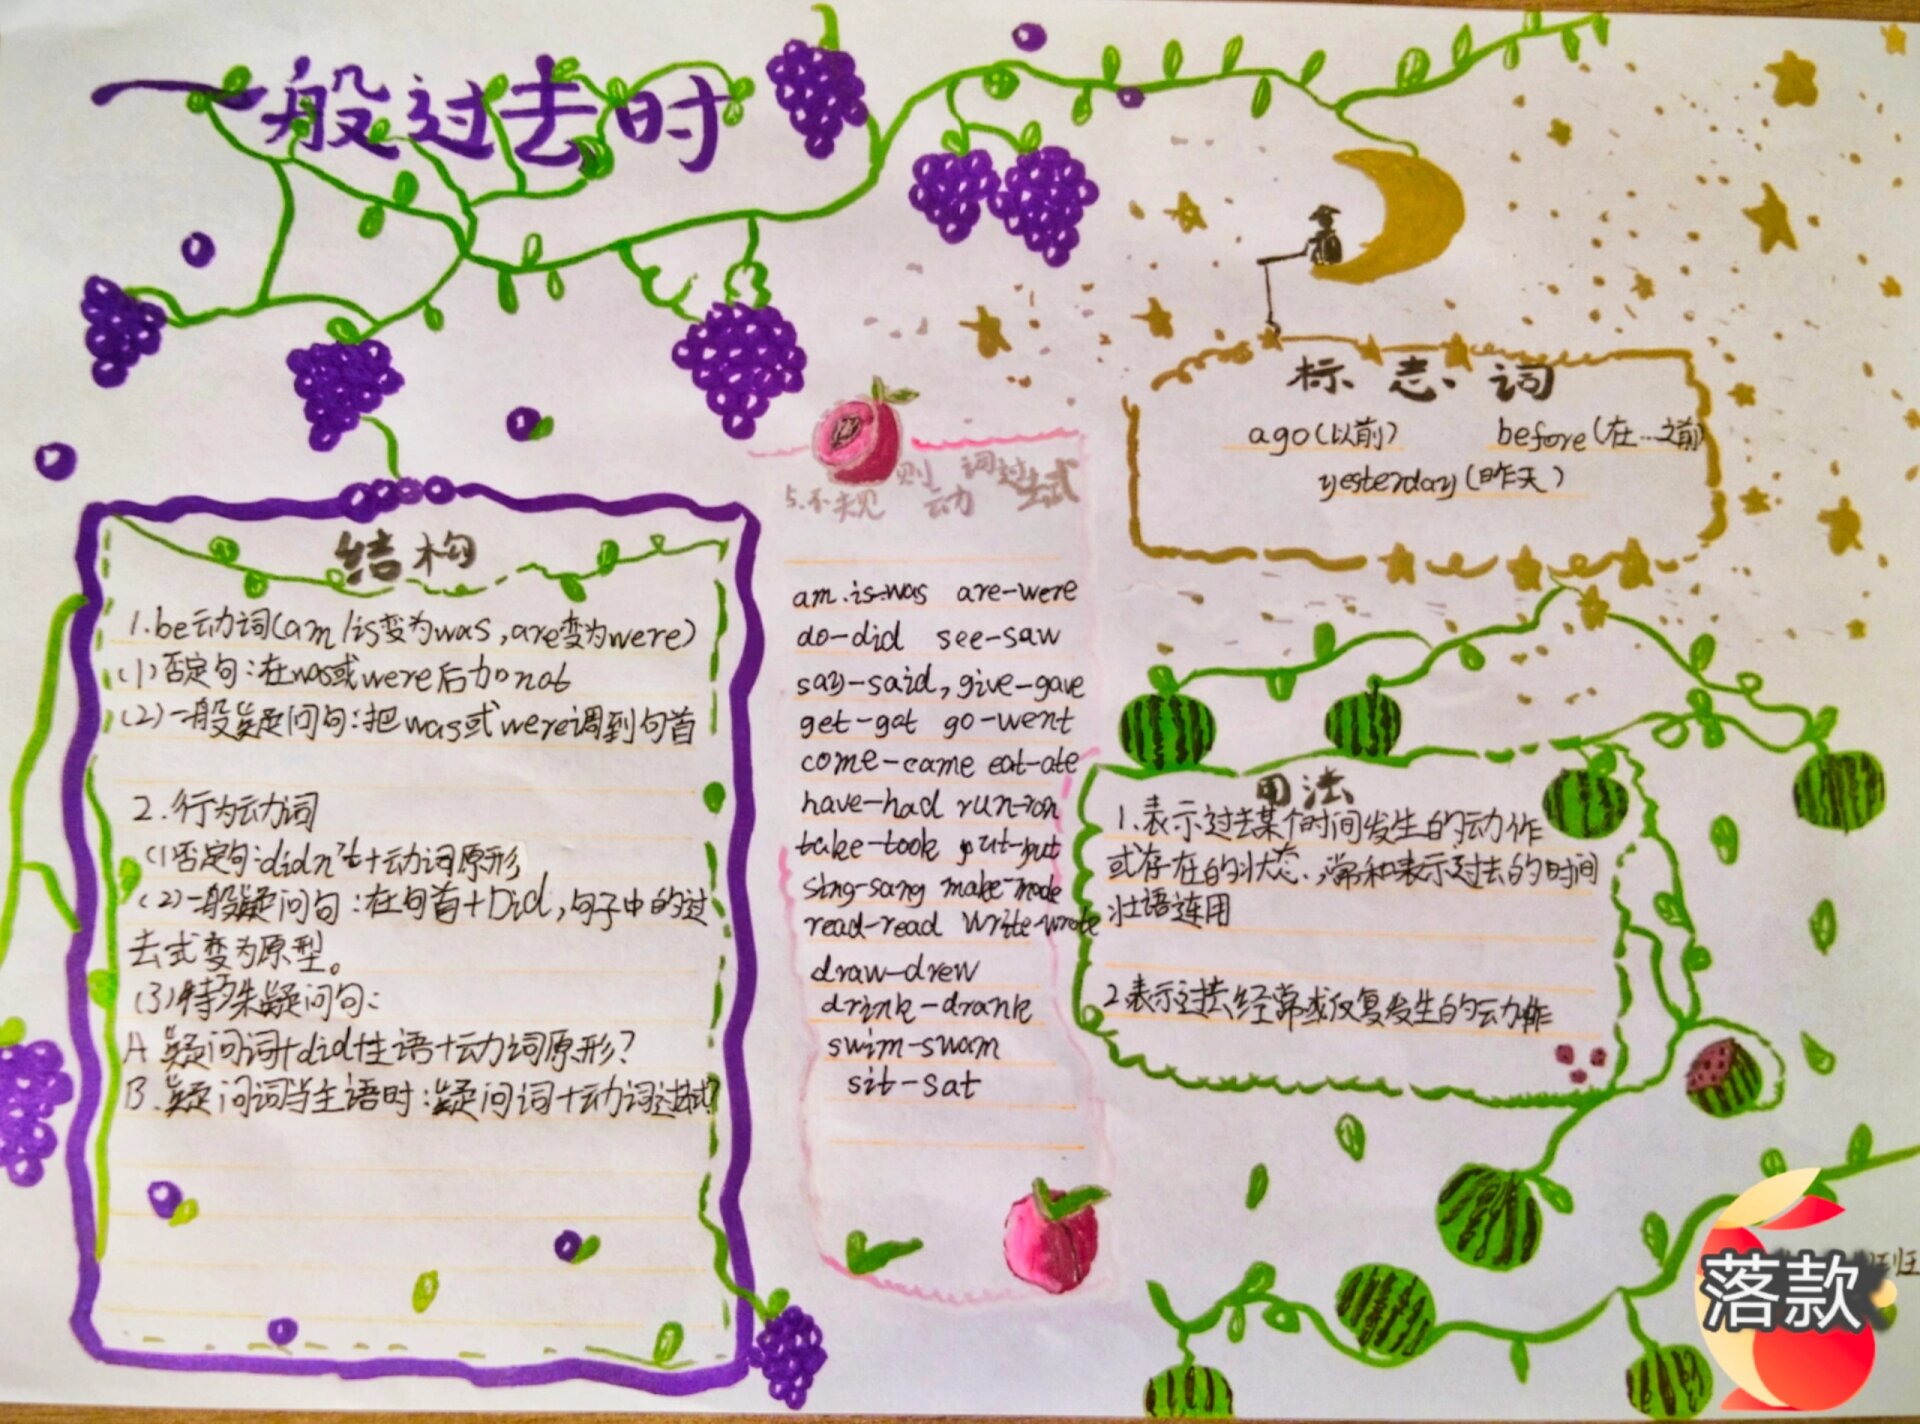 一般过去时
结构
1.be动词(am/is变为was,are变为were)
(1)否定句:在was或were后加not
(2)一般疑问句:把was或were调到句首
2.行为动词
(1否定句:didn't+动词原形
(2)一般疑问句:在句首+Did,句子中的过
去式变为原型。
(3)特殊疑问句:
A 疑问词+did+主语+动词原形?
B.疑问词当主语时:疑问词+动词过去式?
5.不规则动词过去式
am.is-was are-were
do-did see-saw
say-said,give-gave
get-got go-went
come-came eat-ate
have-had run-ran
take-took put-put
sing-sang make-made
read-read write-wrote
draw-drew
drink-drank
swim-swam
sit-sat
标志词
ago(以前) before(在…之前)
yesterday(昨天)
用法
1.表示过去某个时间发生的动作
或存在的状态.,常和表示过去的时间
壮语连用
2.表示过去经常或反复发生的动作
落款